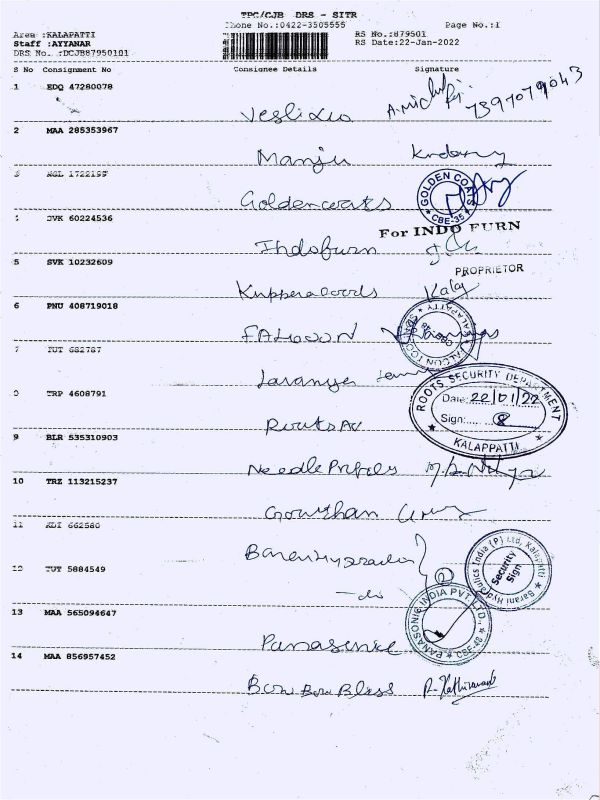 TPC/CJB DRS - SITR
Phone No.:0422-3505555 Page No.:1
Area :KALAPATTI RS No.:879501
Staff :AYYANAR RS Date:22-Jan-2022
DRS No. :DCJB87950101
S No Consignment No Consignee Details Signature
1 EDQ 47280078
7397079043
2 MAA 285353967
Manju
3 NGL 1722195
Goldencoats
GOLDEN COATS
★ CBE-35 ★
4 DVK 60224536
For INDO FURN
Indofurn
PROPRIETOR
5 SVK 10232609
6 PNU 408719018
FALCOON
7 TUT 682787
Laranya
8 TRP 4608791
Roots AV
ROOTS SECURITY DEPARTMENT
Date: 22/01/22
Sign:
★ KALAPPATTI ★
9 BLR 535310903
Needle Profiles
10 TRZ 113215237
Gowthan
11 KDI 662580
Barani Hydraulics India (P) Ltd, Kalapatti
Security Sign
12 TUT 5884549
- do
13 MAA 565094647
PANASONIC INDIA PVT. LTD.,
★ CBE-48 ★
Panasonic
14 MAA 856957452
Bon Bon Bless